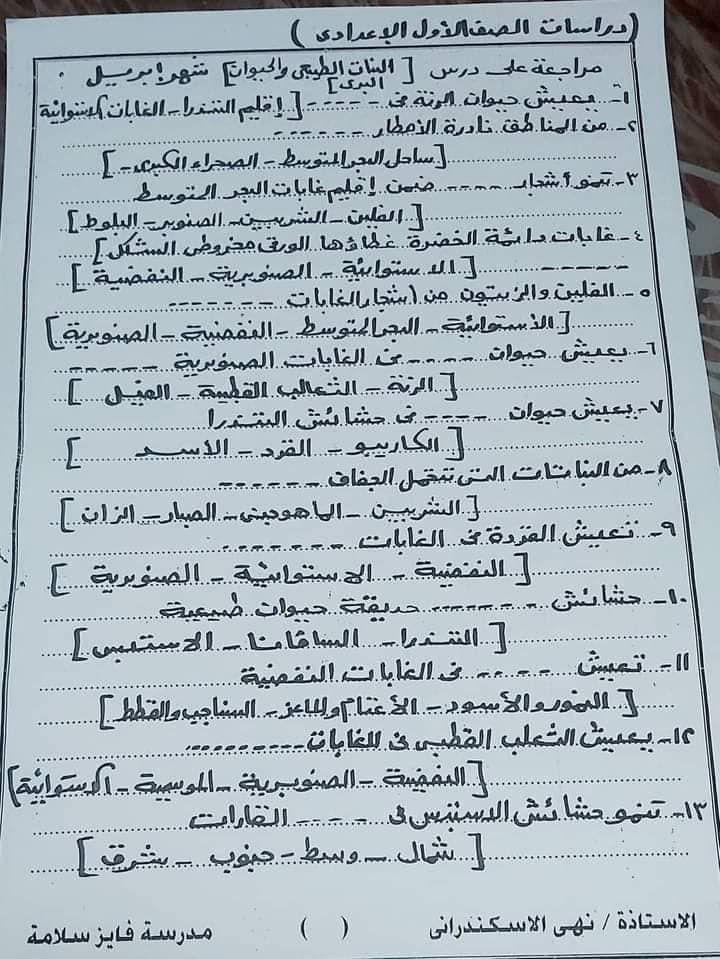 (دراسات الصف الأول الإعدادى)
مراجعة على درس [النبات الطبيعى والحيوان البرى] شهر إبريل
١- يعيش حيوان الرنة فى ----- [إقليم التندرا - الغابات الاستوائية
٢- من المناطق نادرة الأمطار ------
[ساحل البحر المتوسط - الصحراء الكبرى -]
٣- تنمو أشجار ---- ضمن إقليم غابات البحر المتوسط
[الفلين - الشربين - الصنوبر - البلوط]
٤- غابات دائمة الخضرة غطاؤها الورقى مخروطى الشكل
------ [الاستوائية - الصنوبرية - النفضية]
٥- الفلين والزيتون من أشجار الغابات ------
[الأستوائية - البحر المتوسط - النفضية - الصنوبرية]
٦- يعيش حيوان ---- فى الغابات الصنوبرية -----
[الرنة - الثعالب القطبية - الفيل]
٧- يعيش حيوان ---- فى حشائش التندرا
[الكاريبو - القرد - الأسد]
٨- من النباتات التى تتحمل الجفاف ------
[الشربين - الماهوجنى - الصبار - الزان]
٩- تعيش القردة فى الغابات -------
[النفضية - الاستوائية - الصنوبرية]
١٠- حشائش ------ حديقة حيوان طبيعية
[التندرا - السافانا - الاستبس]
١١- تعيش ---- فى الغابات النفضية
[النمور والأسود - الأغنام والماعز - السناجب والقطط]
١٢- يعيش الثعلب القطبى فى الغابات ---------
[النفضية - الصنوبرية - الموسمية - الاستوائية]
١٣- تنمو حشائش الاستبس فى ---- القارات
[شمال - وسط - جنوب - شرق]
الاستاذة / نهى الاسكندرانى ( ) مدرسة فايز سلامة